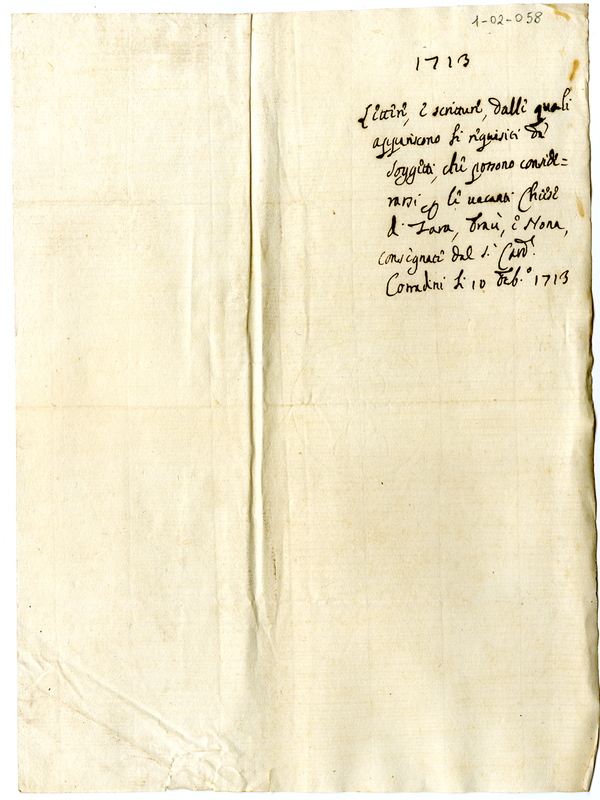 1-02-058
1713
Lettere, e scritture, dalle quali
appariscono li requisiti de
Soggetti, che possono conside=
rarsi per le vacanti Chiese
di Zara, Traù, e Nona,
consegnate dal S.r Card.
Corradini li 10 Feb.o 1713